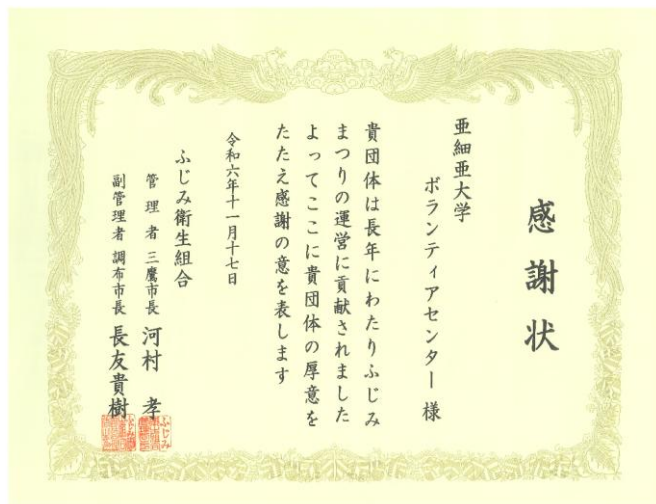 感謝状
亜細亜大学
ボランティアセンター 様
貴団体は長年にわたりふじみ
まつりの運営に貢献されました
よってここに貴団体の厚意を
たたえ感謝の意を表します
令和六年十一月十七日
ふじみ衛生組合
管理者 三鷹市長 河村 孝
副管理者 調布市長 長友貴樹